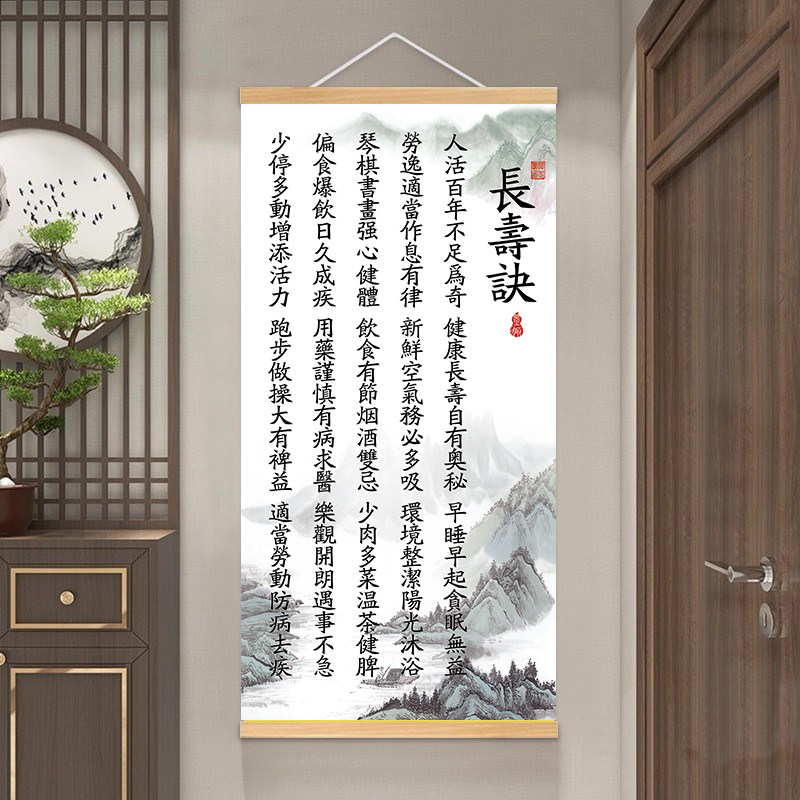 長壽訣
人活百年不足爲奇 健康長壽自有奥秘 早睡早起貪眠無益
勞逸適當作息有律 新鮮空氣務必多吸 環境整潔陽光沐浴
琴棋書畫强心健體 飲食有節烟酒雙忌 少肉多菜温茶健脾
偏食爆飲日久成疾 用藥謹慎有病求醫 樂觀開朗遇事不急
少停多動增添活力 跑步做操大有裨益 適當勞動防病去疾